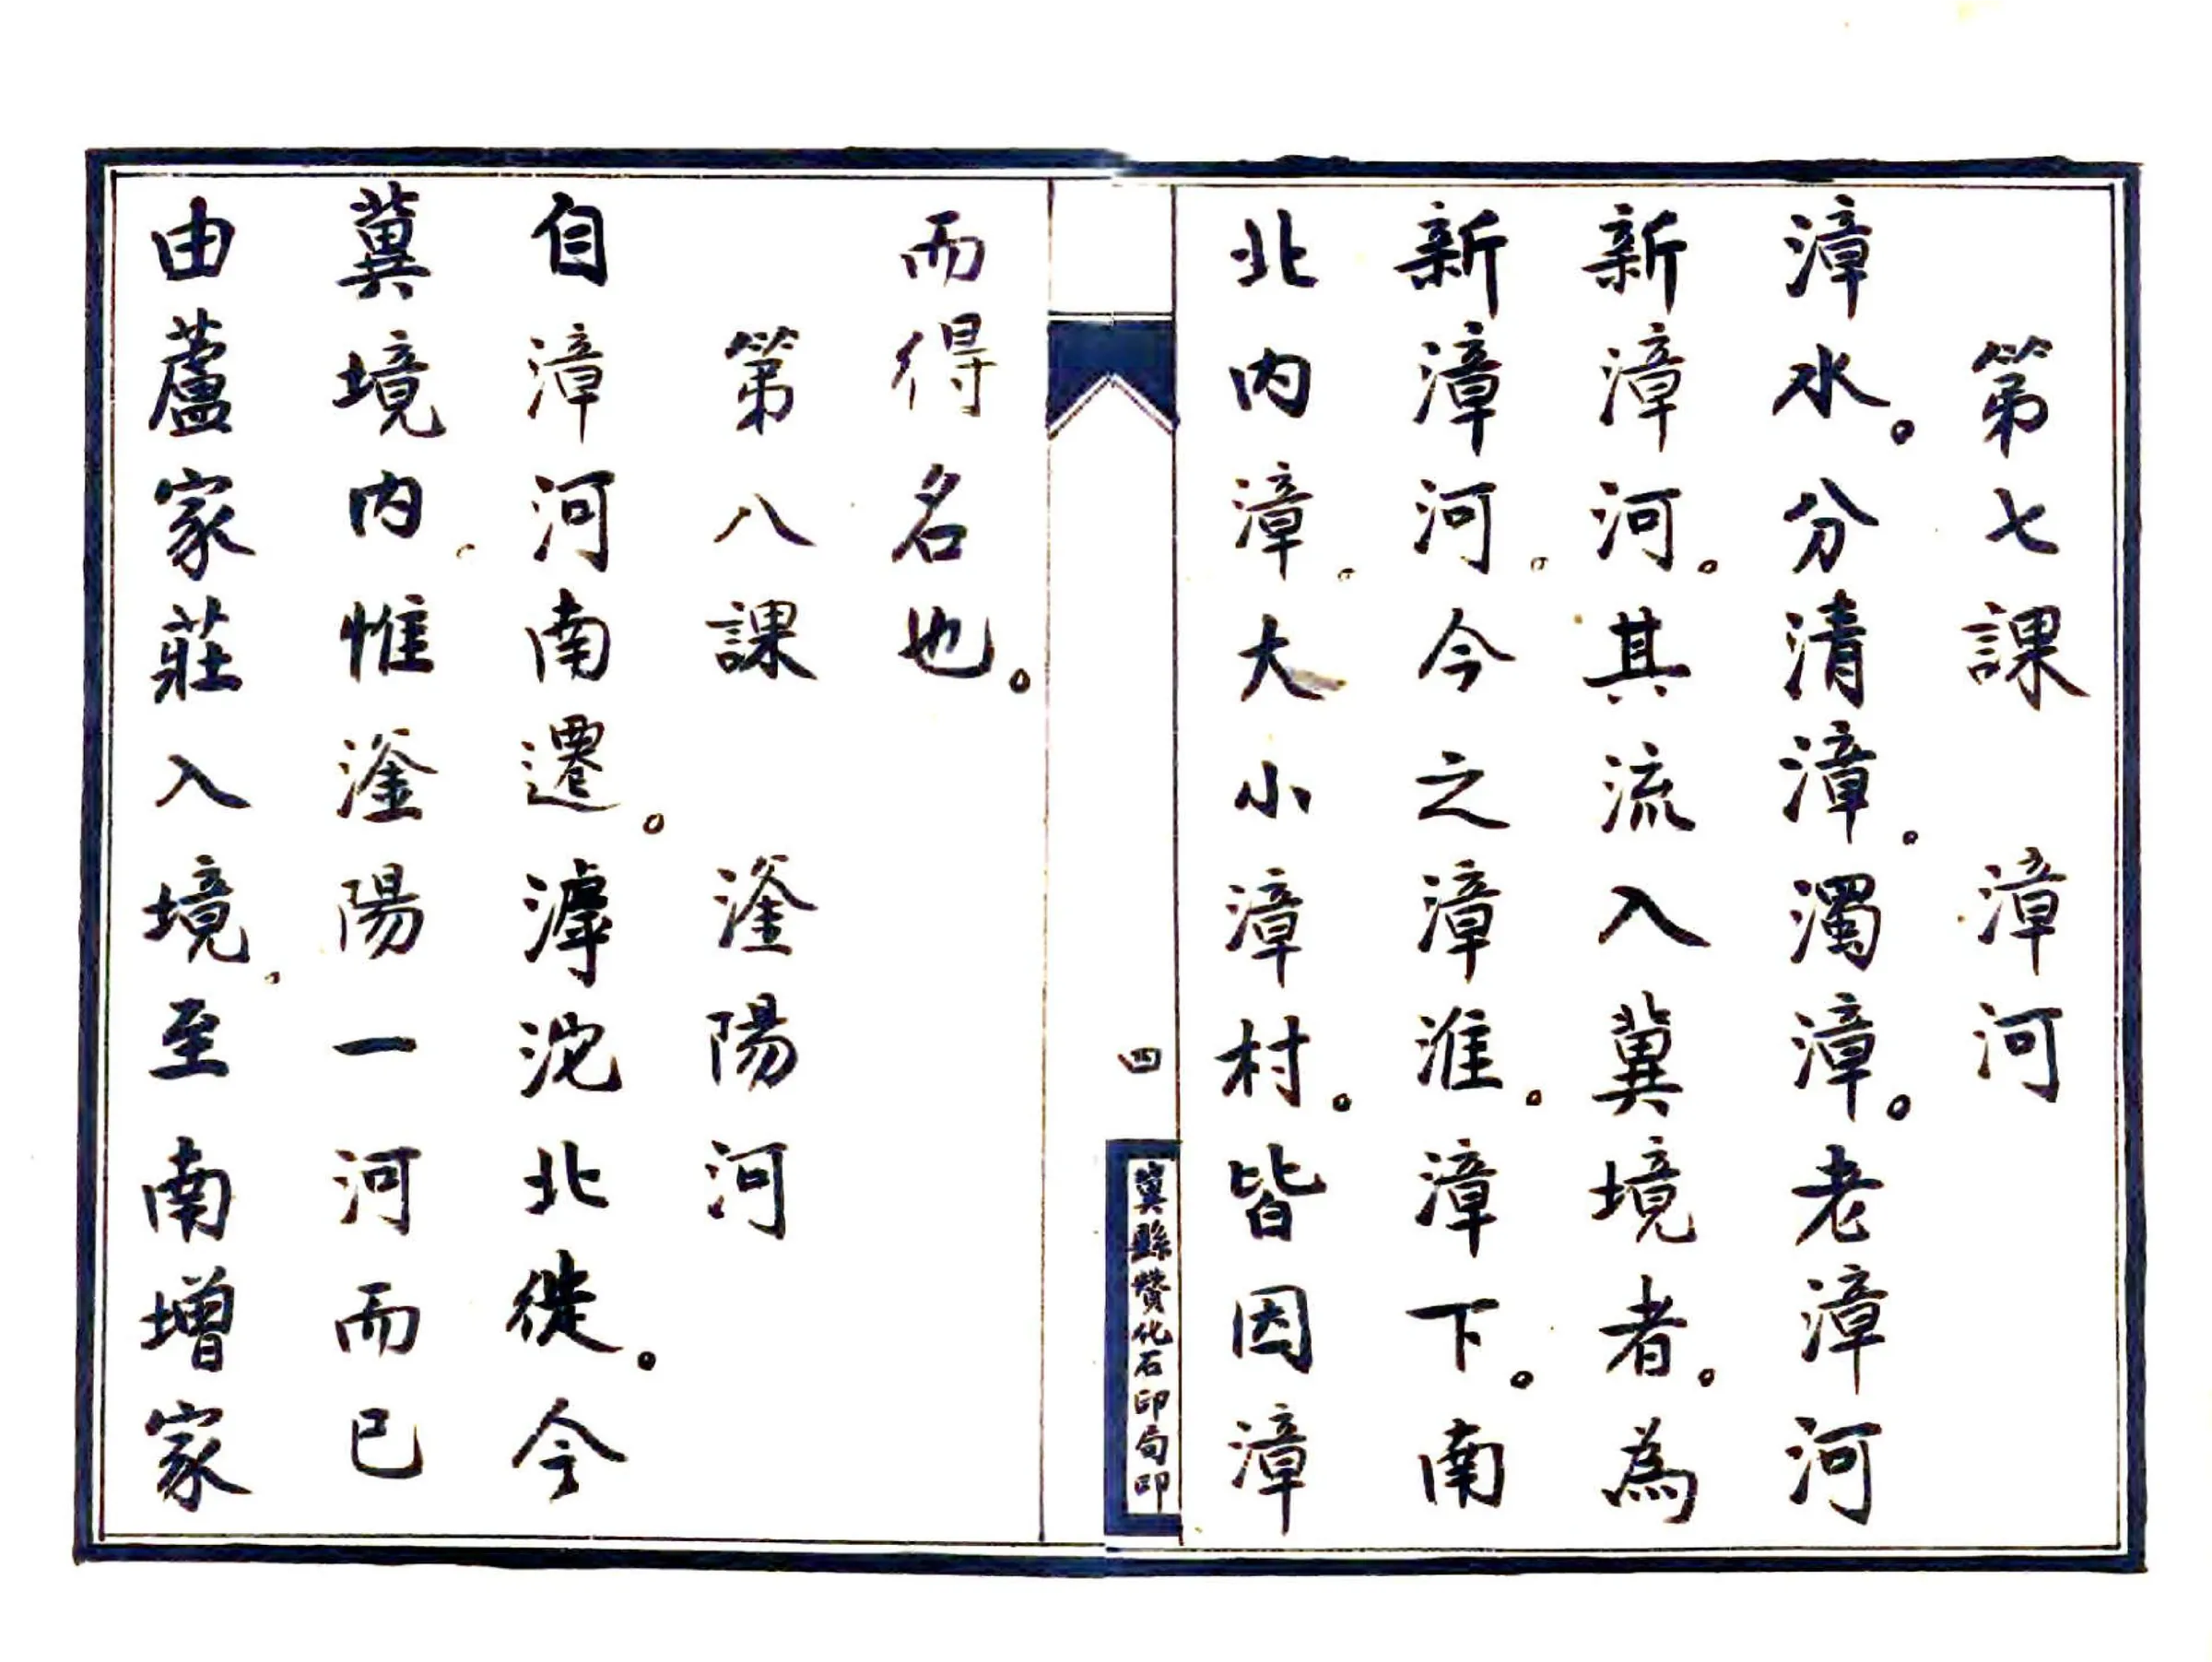 第七課　漳河
漳水。分清漳。濁漳。老漳河
新漳河。其流入冀境者。為
新漳河。今之漳淮。漳下。南
北內漳。大小漳村。皆因漳
四
冀縣贊化石印局印
而得名也。
第八課　滏陽河
自漳河南遷。滹沱北徙。今
冀境內。惟滏陽一河而已
由蘆家莊入境。至南增家